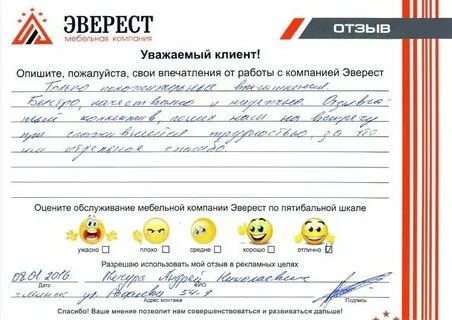 ЭВЕРЕСТ
мебельная компания
ОТЗЫВ
Уважаемый клиент!
Опишите, пожалуйста, свои впечатления от работы с компанией Эверест
Только положительные впечатления.
Быстро, качественно и надежно. Отзывчи-
вый коллектив, пошли нам на встречу
при сложившейся трудностью, за что
им отдельное спасибо.
Оцените обслуживание мебельной компании Эверест по пятибальной шкале
ужасно плохо средне хорошо отлично
Разрешаю использовать мой отзыв в рекламных целях
08.01.2016 Кечура Андрей Николаевич
Дата ФИО
г. Минск ул. 54-9
Адрес монтажа Подпись
Спасибо! Ваше мнение позволит нам совершенствоваться и развиваться дальше!